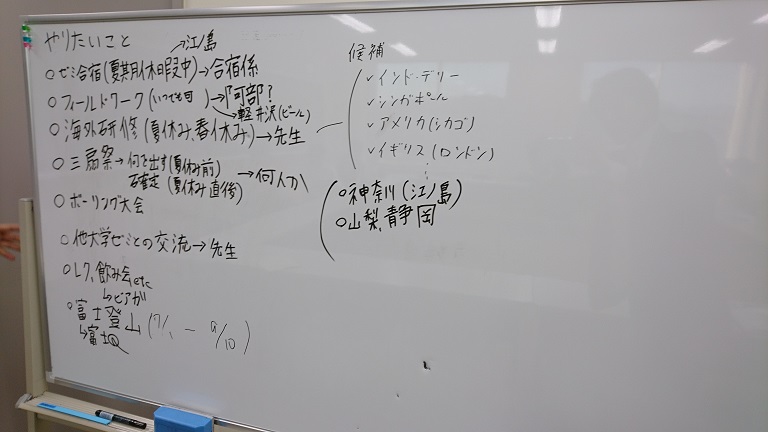 やりたいこと
→江ノ島
○ゼミ合宿(夏期休暇中)→合宿係
○フィールドワーク(いつでも可)→阿部?
→軽井沢(ビール)
○海外研修(夏休み、春休み)→先生
○三扇祭→何を出す(夏休み前)
確定(夏休み直後)
→何人か
○ボーリング大会
○他大学ゼミとの交流→先生
○レク、飲み会etc
↳ビアガ
○富士登山(7/1 - 9/10)
↳富士Q
候補
✓インド・デリー
✓シンガポール
✓アメリカ(シカゴ)
✓イギリス(ロンドン)
⋮
○神奈川(江ノ島)
○山梨、静岡